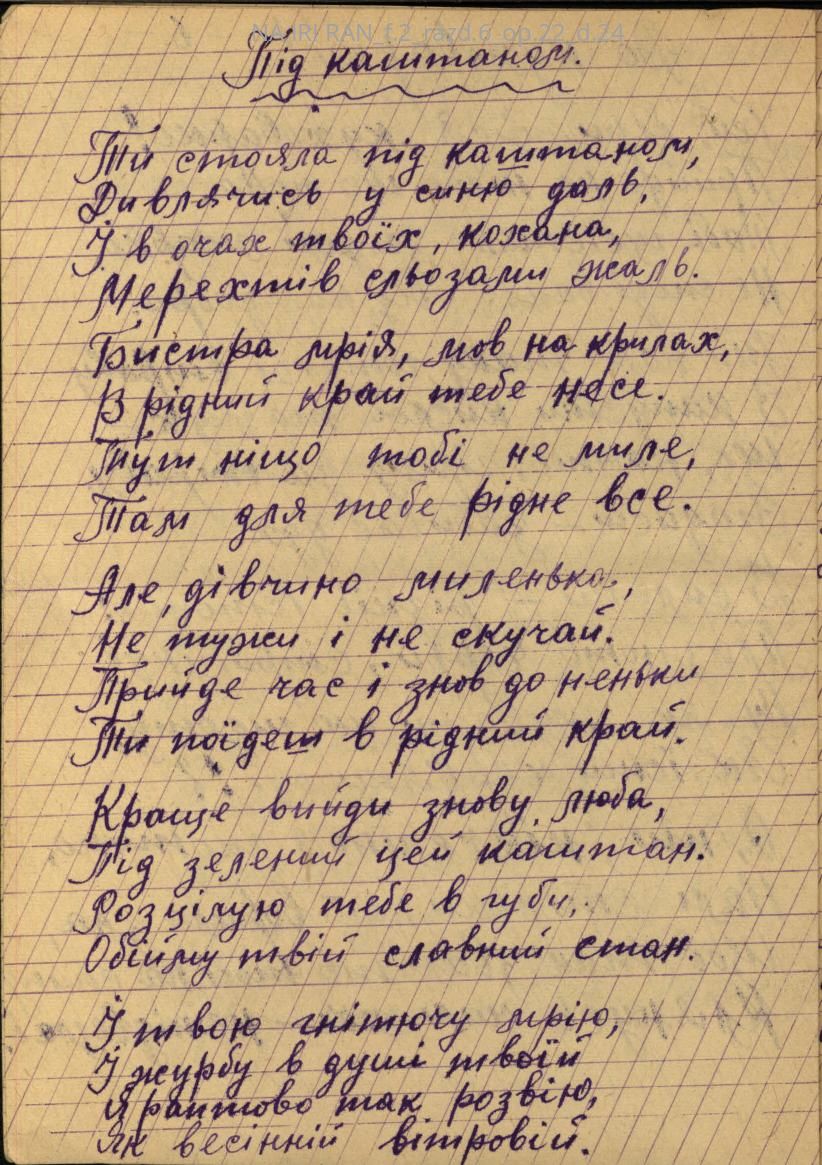 NA IRI RAN f.2_razd.6_op.22_d.24
Під каштаном.
Ти стояла під каштаном,
Дивлячись у синю даль,
І в очах твоїх, кохана,
Мерехтів сльозами жаль.
Бистра мрія, мов на крилах,
В рідний край тебе несе.
Тут ніщо тобі не миле,
Там для тебе рідне все.
Але, дівчино миленька,
Не тужи і не скучай.
Прийде час і знов до неньки
Ти поїдеш в рідний край.
Краще вийди знову, люба,
Під зелений цей каштан.
Розцілую тебе в губи,
Обійму твій славний стан.
І твою гнітючу мрію,
І журбу в душі твоїй
Я раптово так розвію,
Як весінній вітровій.